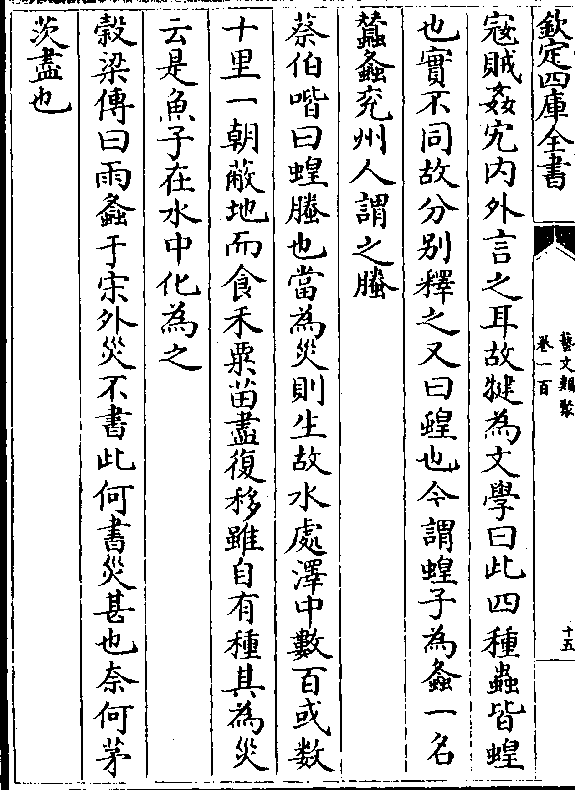 欽定四庫全書
藝文類聚
卷一百
十五
寇賊姦宄内外言之耳故犍為文學曰此四種蟲皆蝗
也實不同故分别釋之又曰蝗也今謂蝗子為螽一名
蠶螽兖州人謂之螣
蔡伯喈曰蝗螣也當為災則生故水處澤中數百或數
十里一朝蔽地而食禾粟苗盡復移雖自有種其為災
云是魚子在水中化為之
穀梁傳曰雨螽于宋外災不書此何書災甚也奈何茅
茨盡也